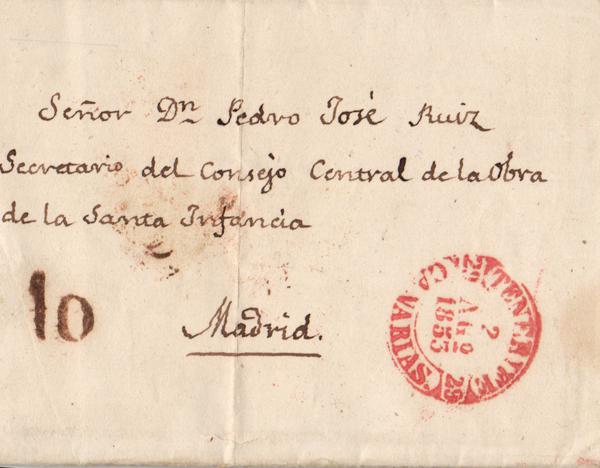 Señor Dn Pedro José Ruiz
Secretario del Consejo Central de la Obra
de la Santa Infancia
10
Madrid.
TENERIFE
2
AGO
1853
28
CANARIAS.